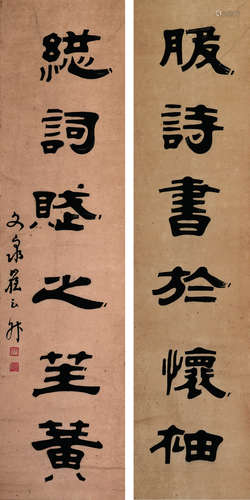 服詩書於懷袖
緫詞賦之笙簧
文泉翟云升